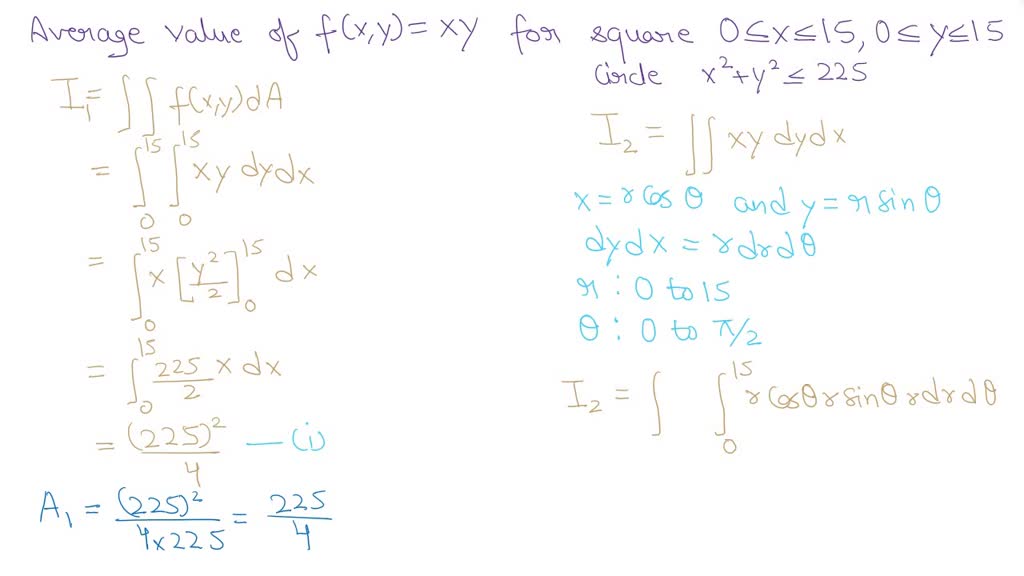 Average value of f(x,y) = xy for square 0≤x≤15, 0≤y≤15
Circle x²+y² ≤ 225
I₁ = ∫∫ f(x,y) dA
= ∫₀¹⁵ ∫₀¹⁵ xy dy dx
= ∫₀¹⁵ x [y²/2]₀¹⁵ dx
= ∫₀¹⁵ 225/2 x dx
= (225)²/4 — (i)
A₁ = (225)²/(4×225) = 225/4
I₂ = ∫∫ xy dy dx
x = r cos θ and y = r sin θ
dy dx = r dr dθ
r : 0 to 15
θ : 0 to π/2
I₂ = ∫ ∫₀¹⁵ r cosθ r sinθ r dr dθ